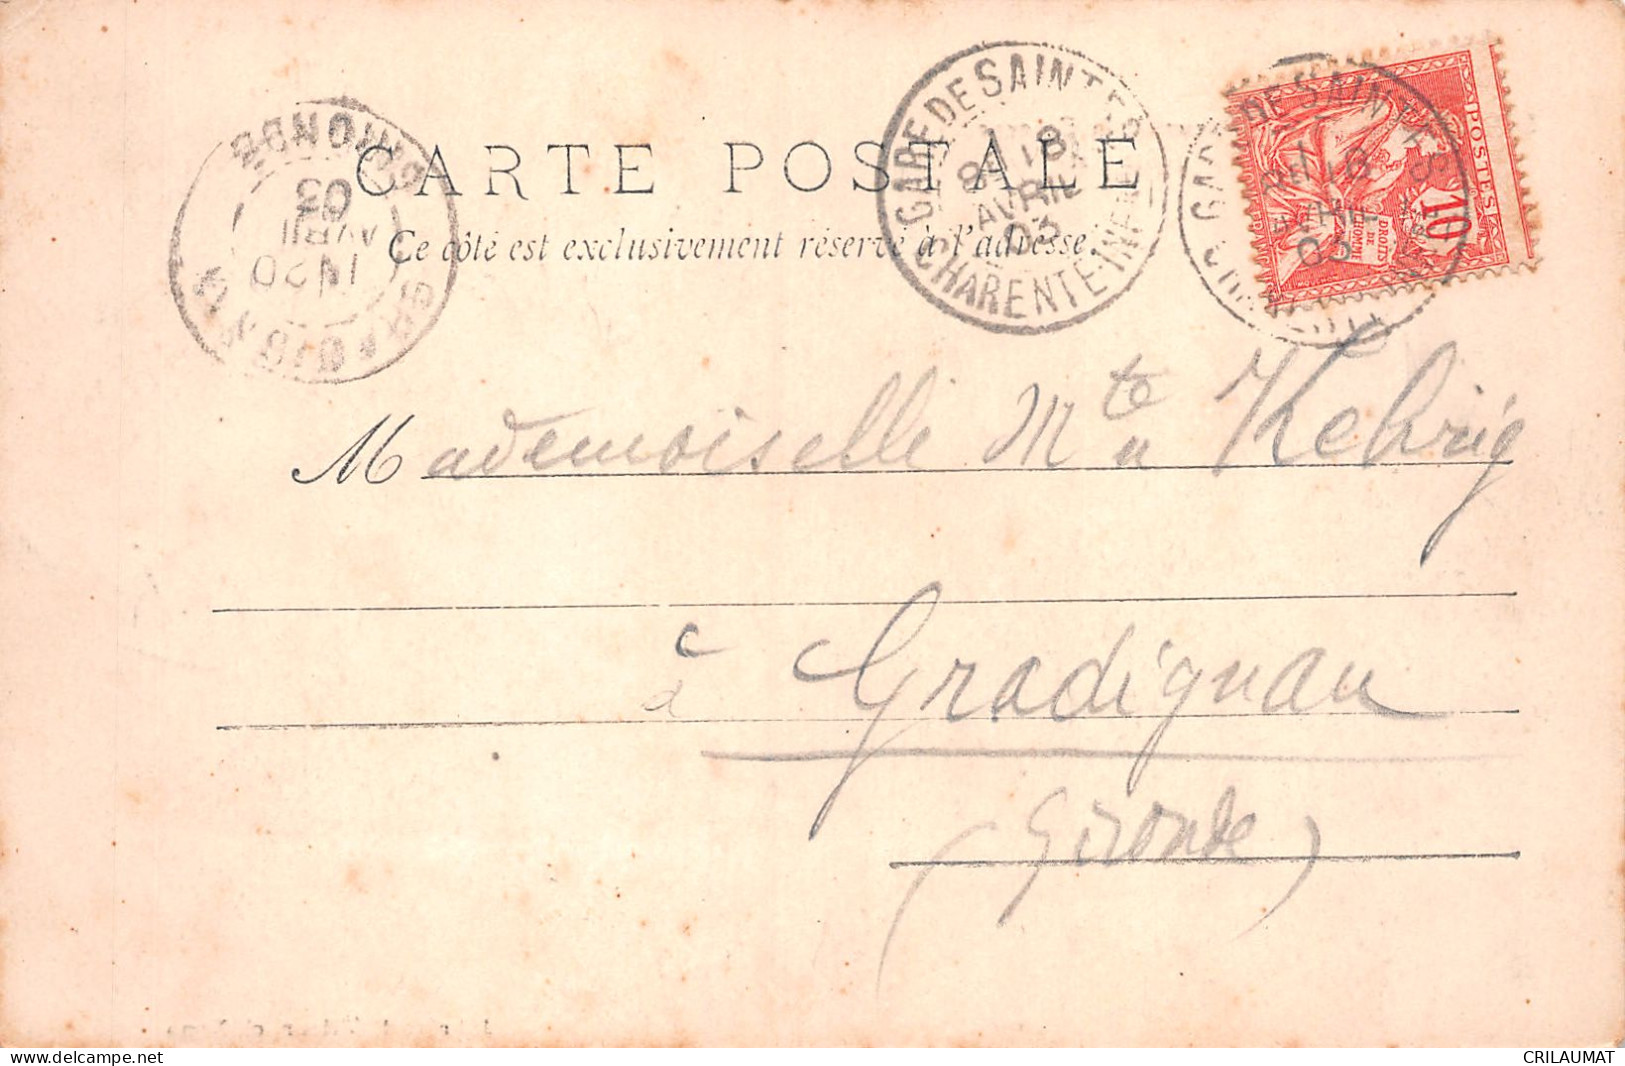 CARTE POSTALE
Ce côté est exclusivement réservé à l'adresse.
GARE DE SAINTES
8 18
AVRIL
03
CHARENTE-INFRE
GARE DE SAINTES
18
AVRIL
03
POSTES
10
DROITS
DE
L'HOMME
GRADIGNAN
GIRONDE
14 20
AVRIL
03
Mademoiselle Mte Kehrig
à Gradignan
(Gironde)
delcampe.net
CRILAUMAT